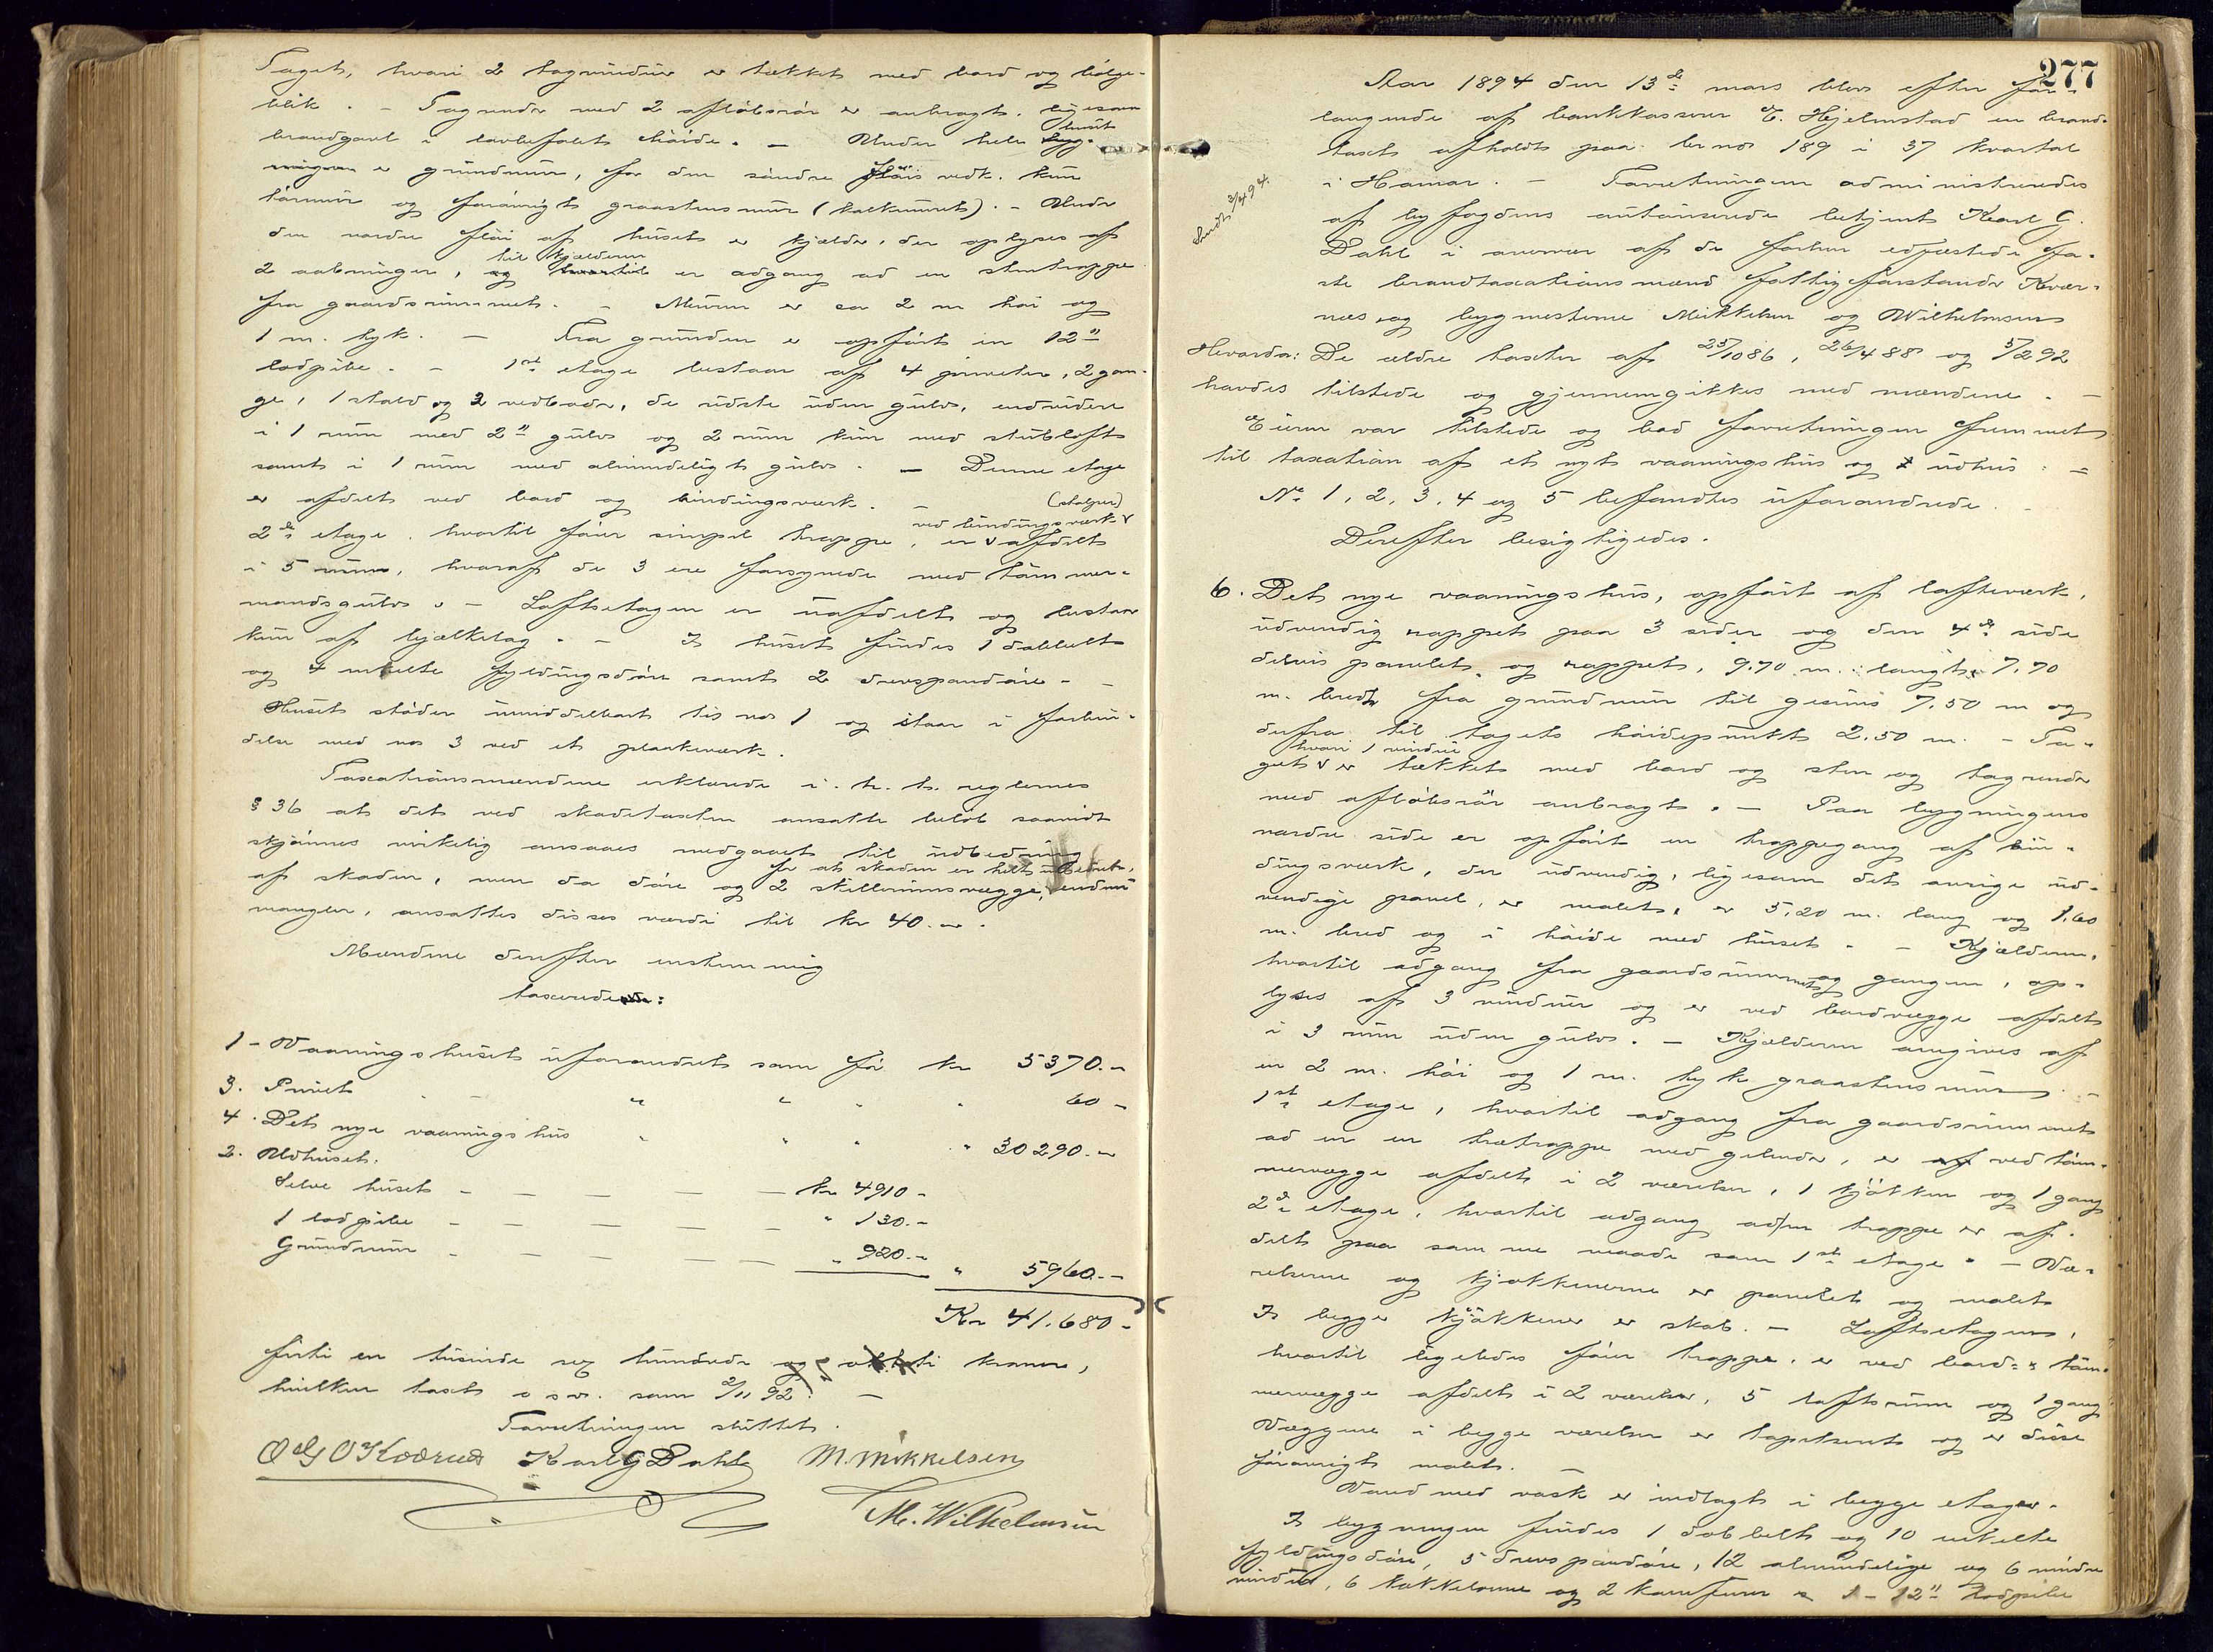 Taget, hvori 2 tagvinduer er tækket med bord og bölge-
blik. - Tagrender med 2 aflöbsrör er anbragt, ligesom
brandgavl i lovbefalet höide. - Under hele huset
er grundmur, for den söndre flöis vedk. kun
törmur og forövrigt graastensmur (kalkmuret). - Under
den nordre flöi af huset er kjælder, der oplyses af
2 aabninger, til kjælderen er adgang ad en stentrappe
fra gaardsrummet. - Muren er ca 2 m höi og
1 m. tyk. - Fra grunden er opfört en 12"
lodpibe. - 1ste etage bestaar af 4 priveter, 2 gan-
ge, 1 stald og 2 vedboder, de sidste uden gulv, endvidere
i 1 rum med 2" gulv og 2 rum kun med stubloft
samt i 1 rum med almindeligt gulv. - Denne etage
er afdelt ved bord og bindingsværk. - (stolper)
2den etage, hvortil förer simpel trappe, er ved bindingsværk afdelt
i 5 rum, hvoraf de 3 ere forsynede med tömmer-
mandsgulv. - Loftsetagen er uafdelt og bestaar
kun af bjælkelag. - I huset findes 1 dobbelt
og 4 enkelte fyldingsdöre samt 2 drevspandöre. -
Huset stöder umiddelbart til no 1 og staar i forbin-
delse med no 3 ved et plankeværk.
Taxationsmændene erklærede i. h. t. reglernes
§ 36 at det ved skadetaxten ansatte belöb saavidt
skjönnes virkelig ansaaes medgaaet til udbedring
af skaden, for at skaden er helt udbedret, men da döre og 2 skillerumsvægge endnu
mangler, ansattes disses værdi til kr 40.-.
Mændene derefter enstemmig
taxerede:
1 - Vaaningshuset uforandret som för kr 5370.-
3. Privet " " " " 60 -
4. Det nye vaaningshus " " " " 30290.-
2. Udhuset.
Selve huset - - - - - kr 4910 -
1 lodpibe - - - - - " 130.-
Grundmur - - - - - " 920.- " 5960.-
Kr 41.680 -
firti en tusinde sex hundrede og otteti kroner,
hvilken taxt o s v. som 2/11 92. -
Forretningen sluttet.
Karl G Dahl M. Mikkelsen
M. Wilhelmsen
277
Aar 1894 den 13de mars blev efter for-
langende af bankkasserer E. Hjelmstad en brand-
taxt afholdt paa br no 189 i 37 kvartal
i Hamar. - Forretningen administreredes
sendt 3/4 94.
af byfogdens autoriserede betjent Karl G.
Dahl i nærvær af de forhen edfæstede fa-
ste brandtaxationsmænd fattigforstander Kvær-
næs og bygmesterne Mikkelsen og Wilhelmsen
Hvorda: De ældre taxter af 25/10 86, 26/4 88 og 5/2 92
havdes tilstede og gjennemgikkes med mændene. -
Eieren var tilstede og bad forretningen fremmet
til taxation af et nyt vaaningshus og udhus: -
No 1, 2, 3, 4 og 5 befandtes uforandrede. -
Derefter besigtigedes.
6. Det nye vaaningshus, opfört af lafteværk,
udvendig rappet paa 3 sider og den 4de side
delvis panelet og rappet, 9.70 m. langt, 7.70
m. bredt, fra grundmur til gesims 7.50 m og
derfra til tagets höidepunkt 2.50 m. - Ta-
get, hvori 1 vindue, er tækket med bord og sten og tagrender
med aflöbsrör anbragt. - Paa bygningens
nordre side er opfört en trappegang af bin-
dingsværk, der udvendig, ligesom det övrige ud-
vendige panel, er malet, er 5,20 m. lang og 1.60
m. bred og i höide med huset. - Kjælderen,
hvortil adgang fra gaardsrummet og gangen, op-
lyses af 3 vinduer og er ved bordvægge afdelt
i 3 rum uden gulv. - Kjælderen omgives af
en 2 m. höi og 1 m. tyk graastensmur. -
1ste etage, hvortil adgang fra gaardsrummet
ad en en trætrappe med gelender, er ved töm-
mervægge afdelt i 2 værelser, 1 kjökken og 1 gang
2den etage, hvortil adgang ad en trappe er af-
delt paa samme maade som 1ste etage. - Væ-
relserne og kjökkenerne er panelet og malet
I begge kjökkener er skab. - Loftsetagen,
hvortil ligeledes förer trappe, er ved bord- & töm-
mervægge afdelt i 2 værelser, 5 loftsrum og 1 gang
Væggene i begge værelser er tapetseret og er disse
forövrigt malet. -
Vand med vask er indlagt i begge etager.
I bygningen findes 1 dobbelt og 10 enkelte
fyldingsdöre, 5 drevspandöre, 12 almindelige og 6 mindre
vinduer, 6 kakkelovne og 2 komfurer & 1 - 12" lodpibe